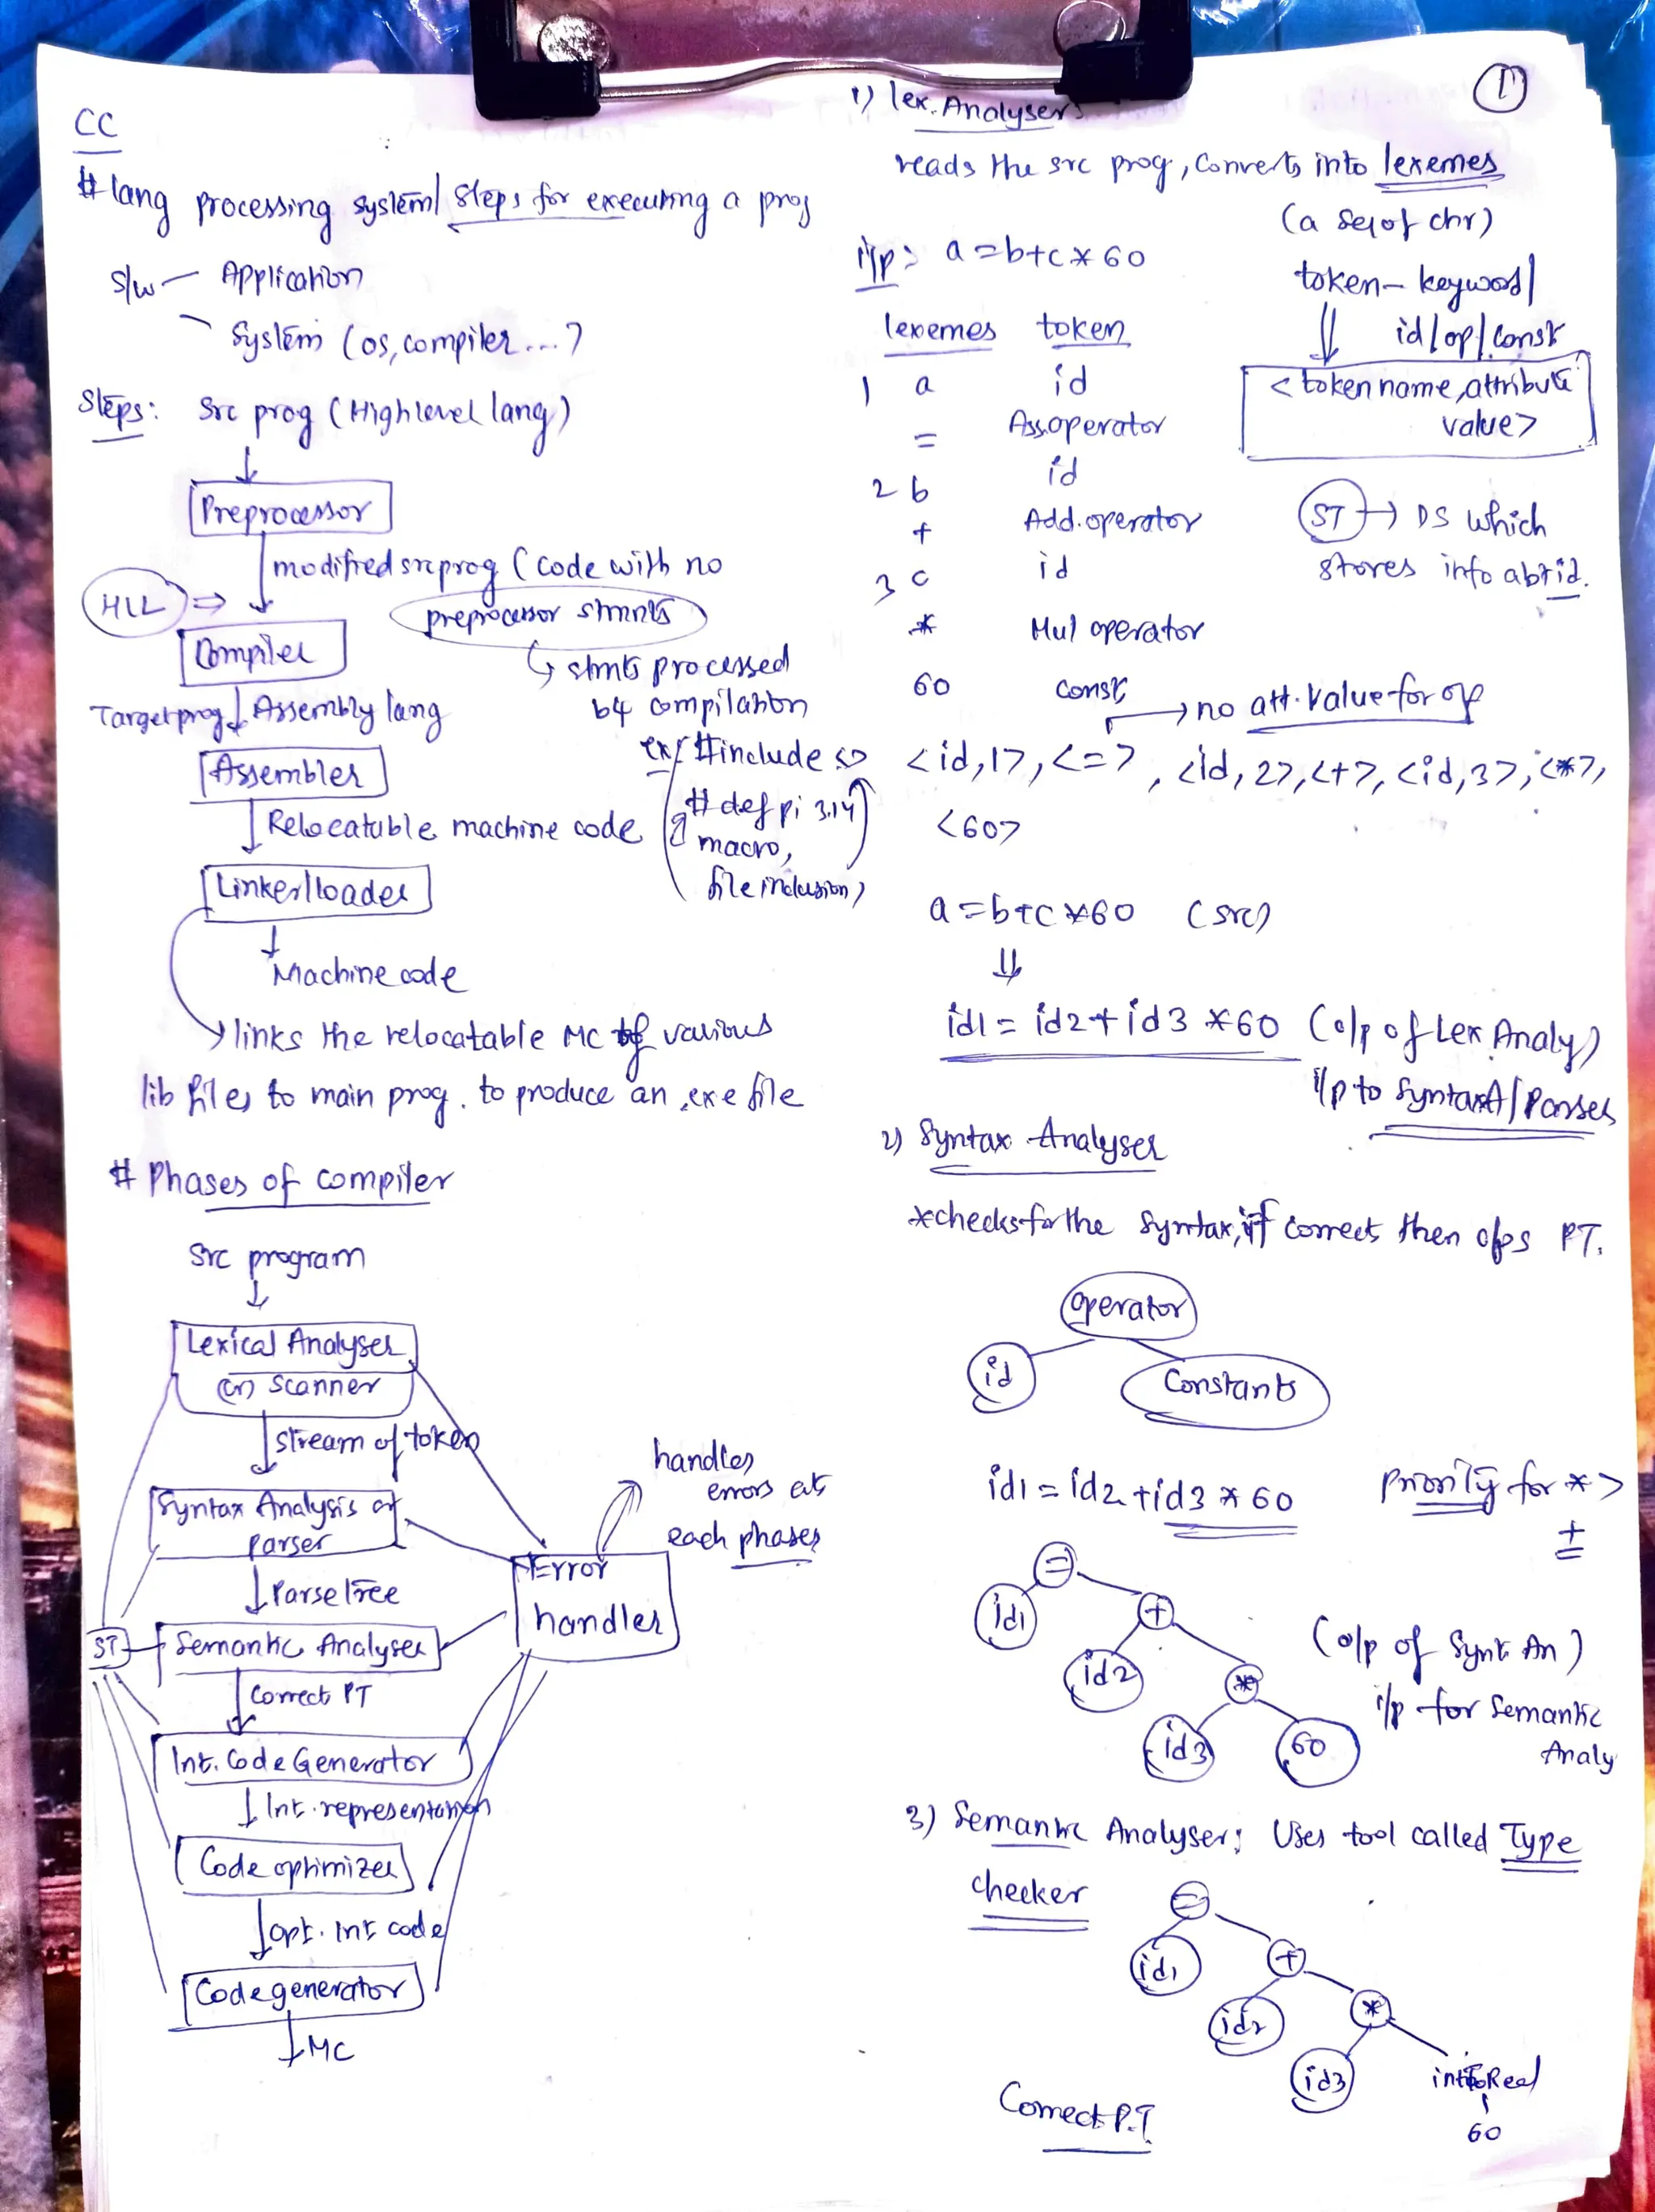 CC
# lang processing system/ steps for executing a prog
s/w - Application
System (os, compiler...)
Steps: Src prog (High level lang)
Preprocessor
modified src prog (code with no
preprocessor stmnts
HLL ⇒
Compiler
stmts processed
b4 compilation
Target prog Assembly lang
ex #include <>
Assembler
# def pi 3.14
Relocatable machine code
macro,
file inclusion)
Linker/loader
Machine code
links the relocatable MC of various
lib files to main prog. to produce an .exe file
# Phases of compiler
Src program
Lexical Analyser
(or) scanner
stream of token
Syntax Analysis or
parser
Parse Tree
ST
Semantic Analyser
Correct PT
Int. Code Generator
Int. representation
Code optimizer
opt. Int code
Code generator
MC
Error
handler
handles
errors at
each phases
1
1) lex. Analyser
reads the src prog, converts into lexemes
(a seq of chr)
i/p: a=b+c*60
token - keyword/
id/op/const
<token name, attribute
value>
lexemes token
1 a id
= Ass. operator
2 b id
+ Add. operator
3 c id
* Mul operator
60 const
ST → DS which
stores info abt id.
→ no att. value for op
<id,1>, <=>, <id,2>, <+>, <id,3>, <*>,
<60>
a=b+c*60 (src)
⇓
id1 = id2 + id3 *60 (o/p of Lex Analy)
i/p to SyntaxA/Parser
2) Syntax Analyser
*checks for the syntax, if correct then o/ps PT.
operator
id
Constants
id1 = id2 + id3 * 60 priority for * >
+
=
id1
+
id2
*
id3
60
(o/p of Synt An)
i/p for Semantic
Analy
3) Semantic Analyser: Uses tool called Type
checker
=
id1
+
id2
*
id3
inttoReal
60
Correct P.T